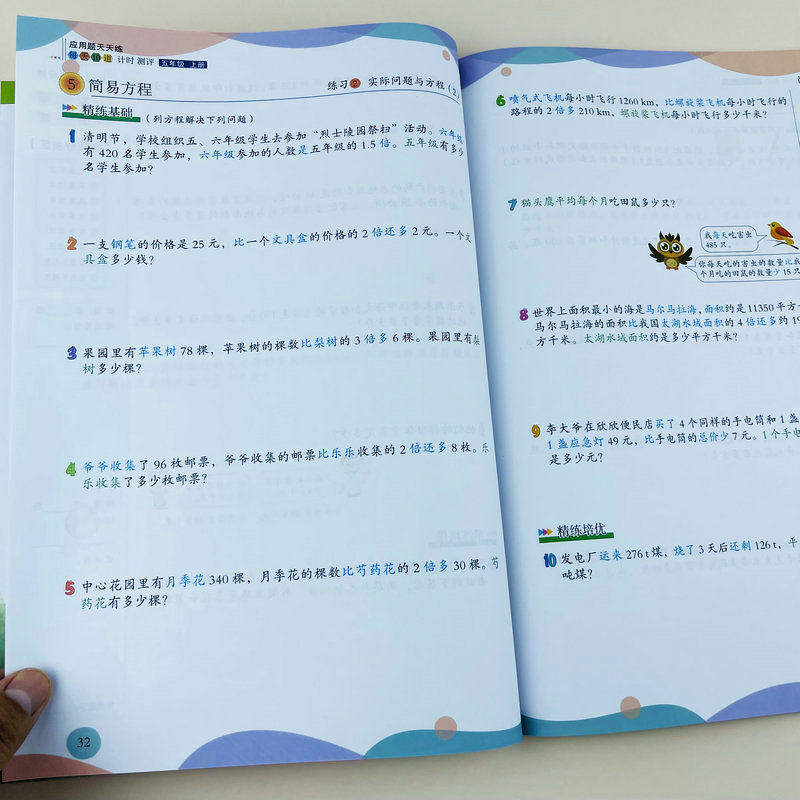 应用题天天练
每天10道 计时 测评 五年级 上册
5 简易方程
练习2 实际问题与方程(2)
精练基础 (列方程解决下列问题)
1 清明节,学校组织五、六年级学生去参加“烈士陵园祭扫”活动。六年级
有 420 名学生参加,六年级参加的人数是五年级的 1.5 倍。五年级有多少
名学生参加?
2 一支钢笔的价格是 25 元,比一个文具盒的价格的 2 倍还多 2 元。一个文
具盒多少钱?
3 果园里有苹果树 78 棵,苹果树的棵数比梨树的 3 倍多 6 棵。果园里有梨
树多少棵?
4 爷爷收集了 96 枚邮票,爷爷收集的邮票比乐乐收集的 2 倍还多 8 枚。乐
乐收集了多少枚邮票?
5 中心花园里有月季花 340 棵,月季花的棵数比芍药花的 2 倍多 30 棵。芍
药花有多少棵?
32
6 喷气式飞机每小时飞行 1260 km,比螺旋桨飞机每小时飞行的
路程的 2 倍多 210 km,螺旋桨飞机每小时飞行多少千米?
7 猫头鹰平均每个月吃田鼠多少只?
我每天吃害虫
485 只。
你每天吃的害虫的数量比我
个月吃的田鼠的数量少 15 只
8 世界上面积最小的海是马尔马拉海,面积约是 11350 平方
马尔马拉海的面积比我国太湖水域面积的 4 倍还多约 19
方千米。太湖水域面积约是多少平方千米?
9 李大爷在欣欣便民店买了 4 个同样的手电筒和 1 盏
1 盏应急灯 49 元,比手电筒的总价少 7 元。1 个手电
是多少元?
精练培优
10 发电厂运来 276 t 煤,烧了 3 天后还剩 126 t,平
吨煤?